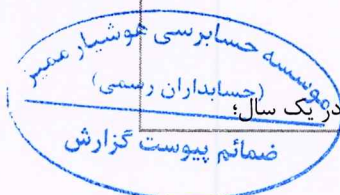 موسسه حسابرسی هوشیار ممیز
(حسابداران رسمی)
در یک سال؛
ضمائم پیوست گزارش